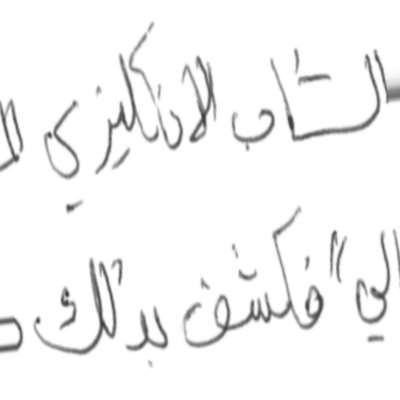 الشاب الانكليزي
الي" فكشف بذلك